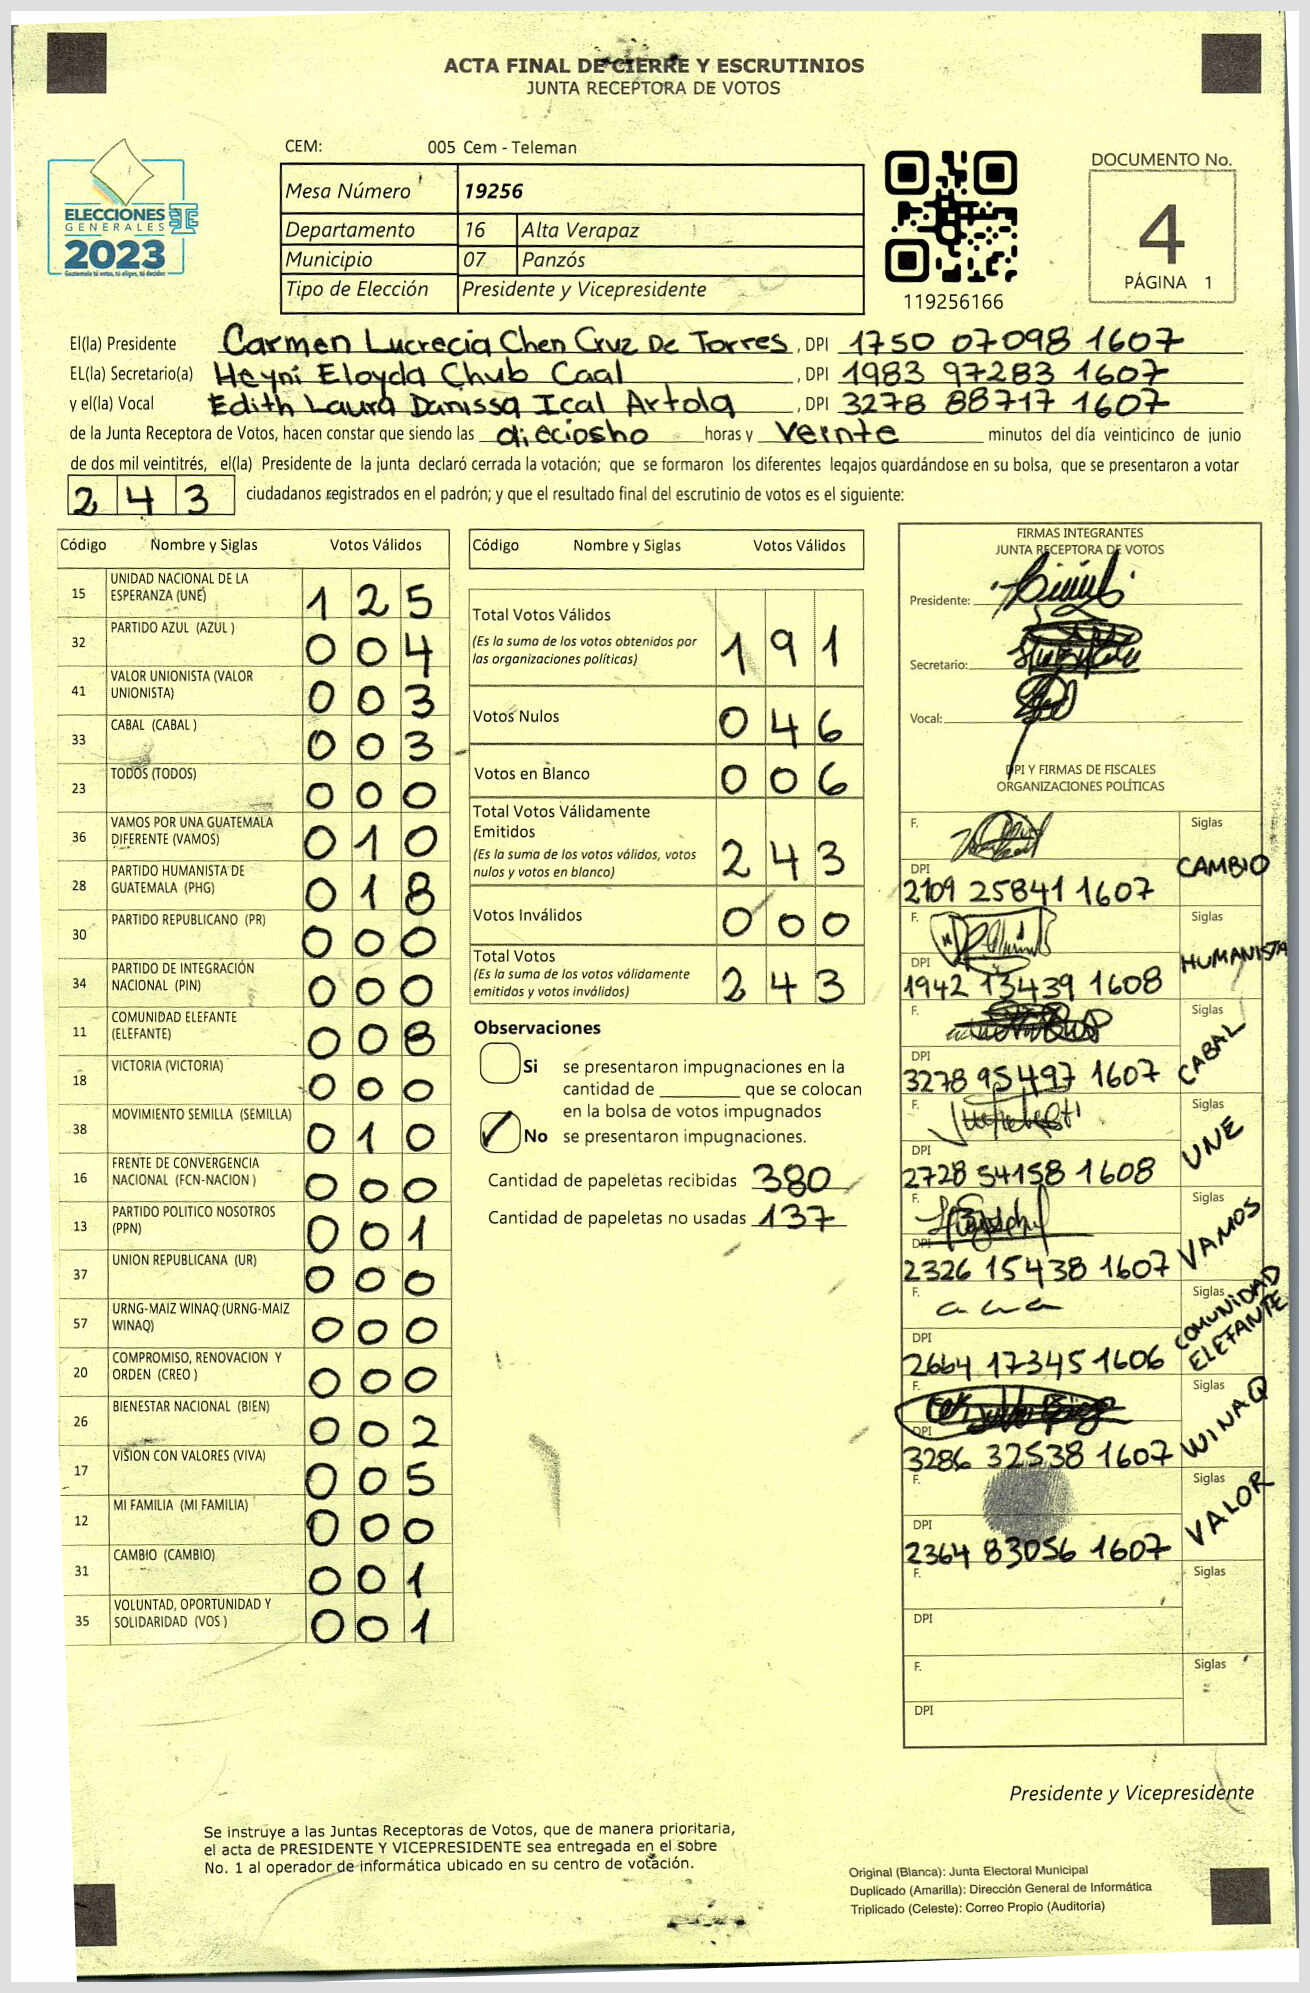 ACTA FINAL DE CIERRE Y ESCRUTINIOS
JUNTA RECEPTORA DE VOTOS
ELECCIONES
GENERALES
2023
Guatemala tú votas, tú eliges, tú decides
CEM: 005 Cem - Teleman
Mesa Número 19256
Departamento 16 Alta Verapaz
Municipio 07 Panzós
Tipo de Elección Presidente y Vicepresidente
119256166
DOCUMENTO No.
4
PÁGINA 1
El(la) Presidente Carmen Lucrecia Chen Cruz De Torres, DPI 1750 07098 1607
EL(la) Secretario(a) Heyni Eloyda Chub Caal, DPI 1983 97283 1607
y el(la) Vocal Edith Laura Danissa Ical Artola, DPI 3278 88717 1607
de la Junta Receptora de Votos, hacen constar que siendo las dieciosho horas y veinte minutos del día veinticinco de junio
de dos mil veintitrés, el(la) Presidente de la junta declaró cerrada la votación; que se formaron los diferentes legajos quardándose en su bolsa, que se presentaron a votar
243 ciudadanos registrados en el padrón; y que el resultado final del escrutinio de votos es el siguiente:
Código Nombre y Siglas Votos Válidos
15 UNIDAD NACIONAL DE LA ESPERANZA (UNE) 125
32 PARTIDO AZUL (AZUL ) 004
41 VALOR UNIONISTA (VALOR UNIONISTA) 003
33 CABAL (CABAL ) 003
23 TODOS (TODOS) 000
36 VAMOS POR UNA GUATEMALA DIFERENTE (VAMOS) 010
28 PARTIDO HUMANISTA DE GUATEMALA (PHG) 018
30 PARTIDO REPUBLICANO (PR) 000
34 PARTIDO DE INTEGRACIÓN NACIONAL (PIN) 000
11 COMUNIDAD ELEFANTE (ELEFANTE) 008
18 VICTORIA (VICTORIA) 000
38 MOVIMIENTO SEMILLA (SEMILLA) 010
16 FRENTE DE CONVERGENCIA NACIONAL (FCN-NACION ) 000
13 PARTIDO POLITICO NOSOTROS (PPN) 001
37 UNION REPUBLICANA (UR) 000
57 URNG-MAIZ WINAQ (URNG-MAIZ WINAQ) 000
20 COMPROMISO, RENOVACION Y ORDEN (CREO ) 000
26 BIENESTAR NACIONAL (BIEN) 002
17 VISION CON VALORES (VIVA) 005
12 MI FAMILIA (MI FAMILIA) 000
31 CAMBIO (CAMBIO) 001
35 VOLUNTAD, OPORTUNIDAD Y SOLIDARIDAD (VOS ) 001
Código Nombre y Siglas Votos Válidos
Total Votos Válidos 191
(Es la suma de los votos obtenidos por
las organizaciones políticas)
Votos Nulos 046
Votos en Blanco 006
Total Votos Válidamente
Emitidos 243
(Es la suma de los votos válidos, votos
nulos y votos en blanco)
Votos Inválidos 000
Total Votos 243
(Es la suma de los votos válidamente
emitidos y votos inválidos)
Observaciones
Si se presentaron impugnaciones en la
cantidad de ________ que se colocan
en la bolsa de votos impugnados
No se presentaron impugnaciones.
Cantidad de papeletas recibidas 380
Cantidad de papeletas no usadas 137
FIRMAS INTEGRANTES
JUNTA RECEPTORA DE VOTOS
Presidente:
Secretario:
Vocal:
DPI Y FIRMAS DE FISCALES
ORGANIZACIONES POLÍTICAS
F. Siglas
DPI CAMBIO
2109 25841 1607
F. Siglas
DPI HUMANISTA
1942 13439 1608
F. Siglas
DPI CABAL
3278 95497 1607
F. Siglas
DPI UNE
2728 54158 1608
F. Siglas
DPI VAMOS
2326 15438 1607
F. Siglas
DPI COMUNIDAD ELEFANTE
2664 17345 1606
F. Siglas
DPI WINAQ
3286 32538 1607
F. Siglas
DPI VALOR
2364 83056 1607
F. Siglas
DPI
F. Siglas
DPI
Presidente y Vicepresidente
Se instruye a las Juntas Receptoras de Votos, que de manera prioritaria,
el acta de PRESIDENTE Y VICEPRESIDENTE sea entregada en el sobre
No. 1 al operador de informática ubicado en su centro de votación.
Original (Blanca): Junta Electoral Municipal
Duplicado (Amarilla): Dirección General de Informática
Triplicado (Celeste): Correo Propio (Auditoria)